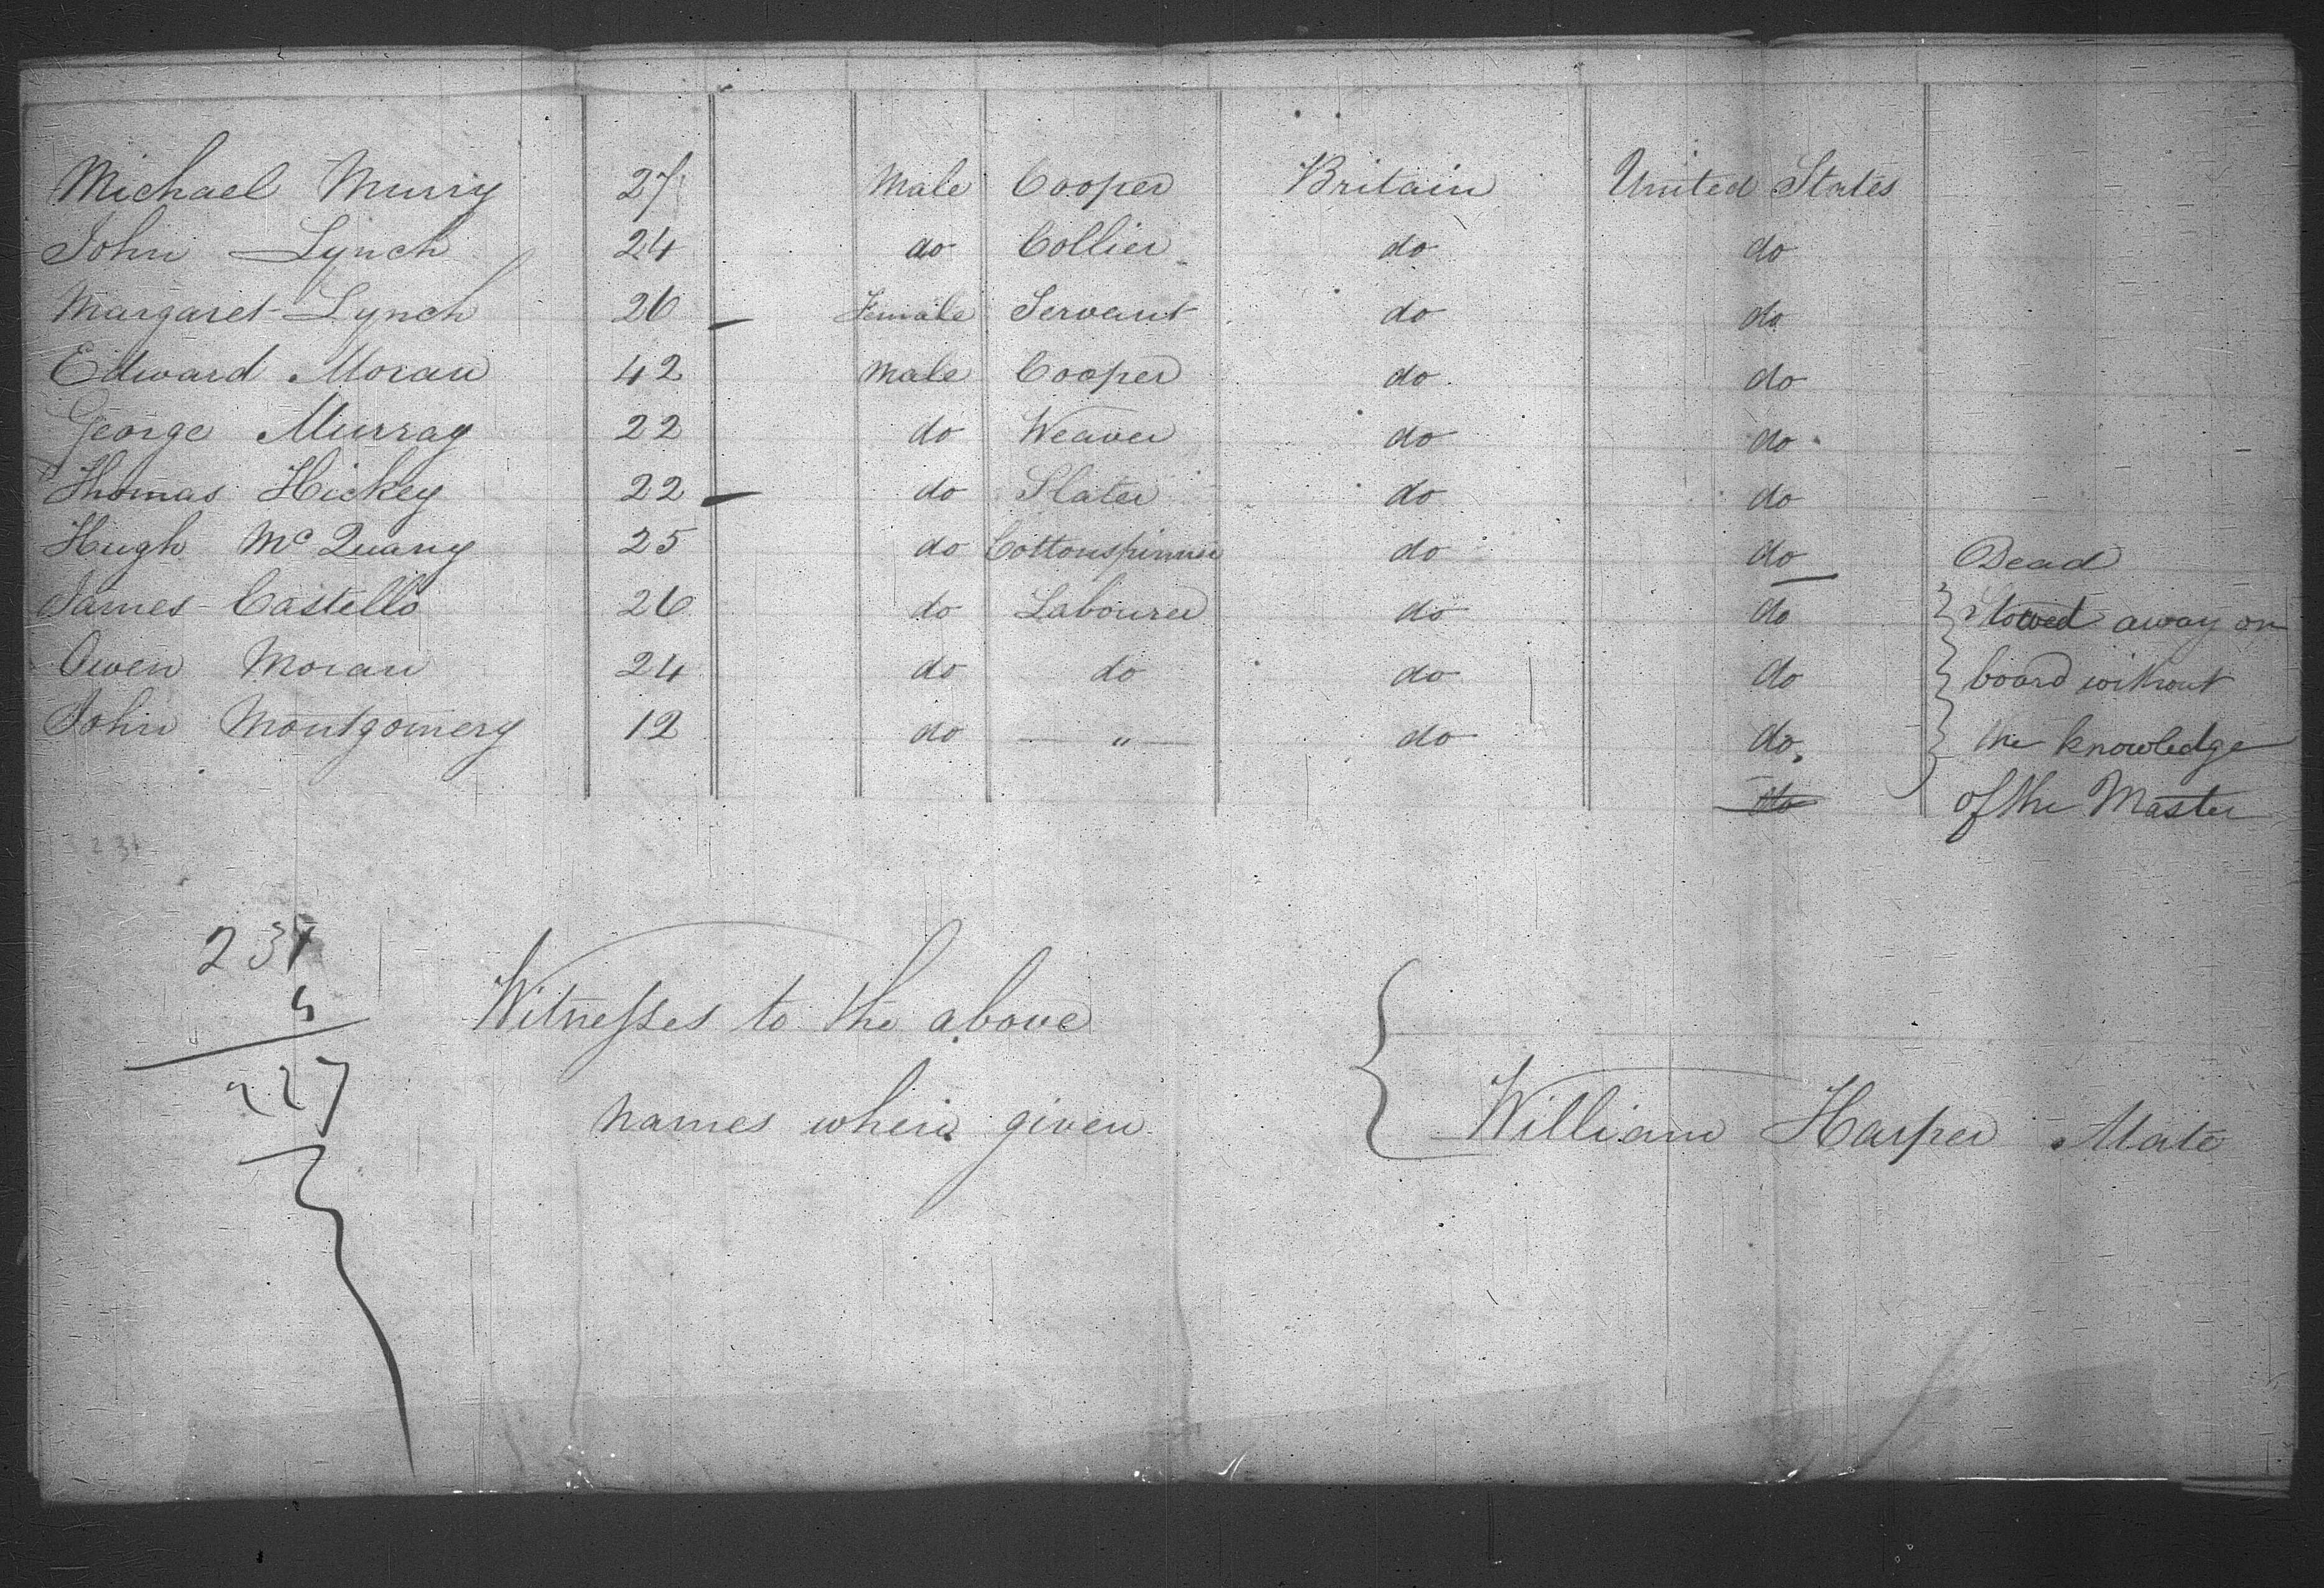 Michael Murry 27 Male Cooper Britain United States
John Lynch 24 do Collier do do
Margaret Lynch 26 Female Servant do do
Edward Moran 42 Male Cooper do do
George Murray 22 do Weaver do do
Thomas Hickey 22 do Slater do do
Hugh McQuany 25 do Cottonspinner do do Dead
James Castello 26 do Labourer do do Stowed away on
Owen Moran 24 do do do do board without
John Montgomery 12 do — " — do do. the knowledge
do of the Master
231
231
4
227
Witnesses to the above
names when given
William Harper Mate